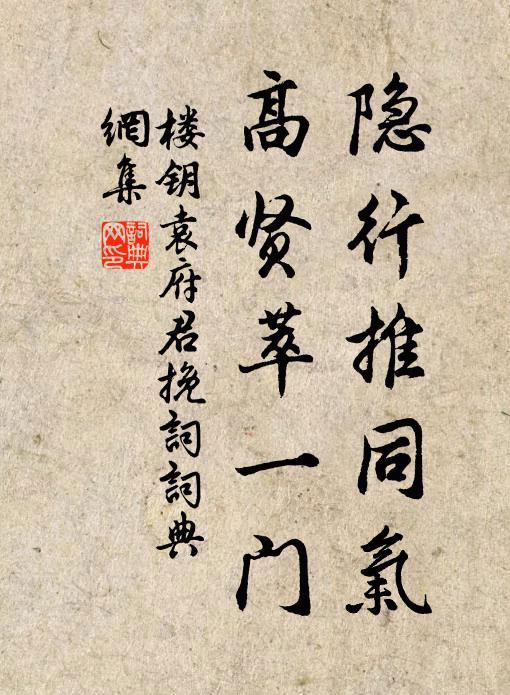 隐行推同氣
高贤萃一门
楼钥袁府君挽詞詞典
網集
詞典
网印